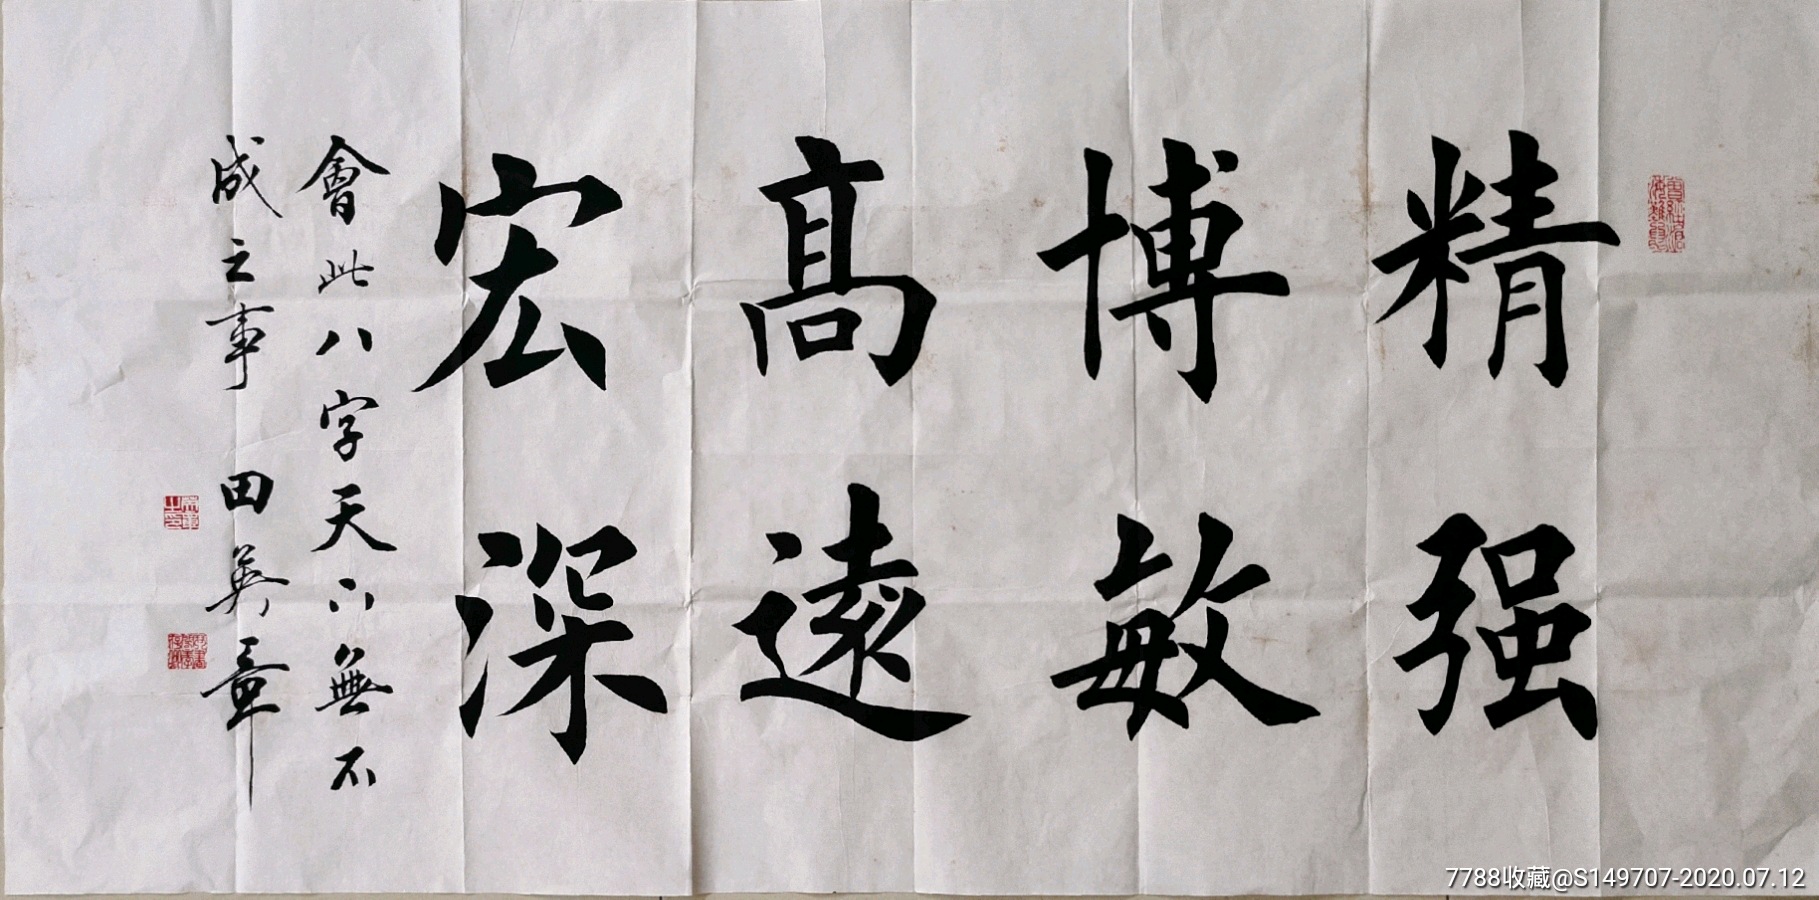 精强
博敏
高遠
宏深
會此八字天下無不
成之事 田英章
7788收藏@S149707-2020.07.12